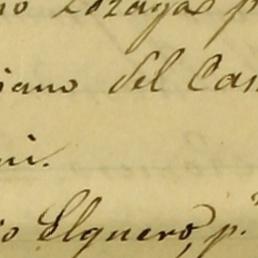 no Lozaga p
iano del Cas
ni.
io Elguero, p.r